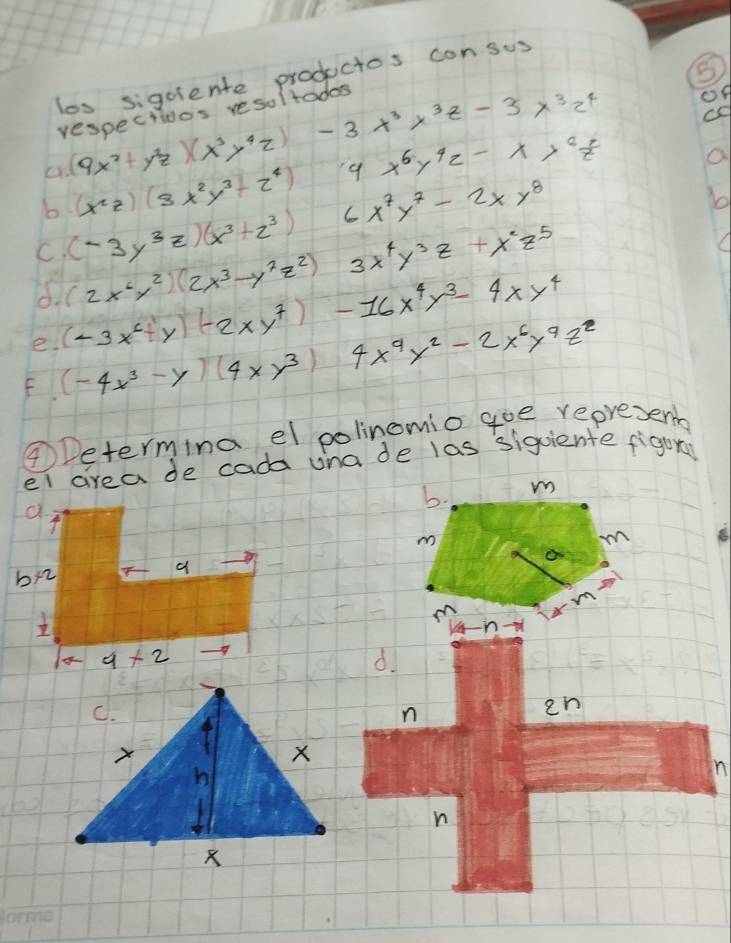 los siguiente productos con sus
respectivos resultados
a.(9x² + y²z)(x³y⁴z) -3x³y³z - 3x³z⁴
b.(x²z)(3x²y³ + z⁴) 9x⁶y⁴z - xy²z
c.(-3y³z)(x³ + z³) 6x⁷y⁷ - 2xy⁸
d.(2x⁶y²)(2x³ - y⁷z²) 3x⁴y³z + x²z⁵
e.(-3x⁶ + y)(-2xy⁷) -16x⁴y³ - 4xy⁴
f.(-4x³ - y)(4xy³) 4x⁹y² - 2x⁶y⁹z²
④ Determina el polinomio que representa
el área de cada una de las siguiente figuras
a.
b+2
a
a+2
b.
m
m
m
a
m
m
c.
x
x
h
x
d.
n
n
2n
n
n
⑤
a
b
c